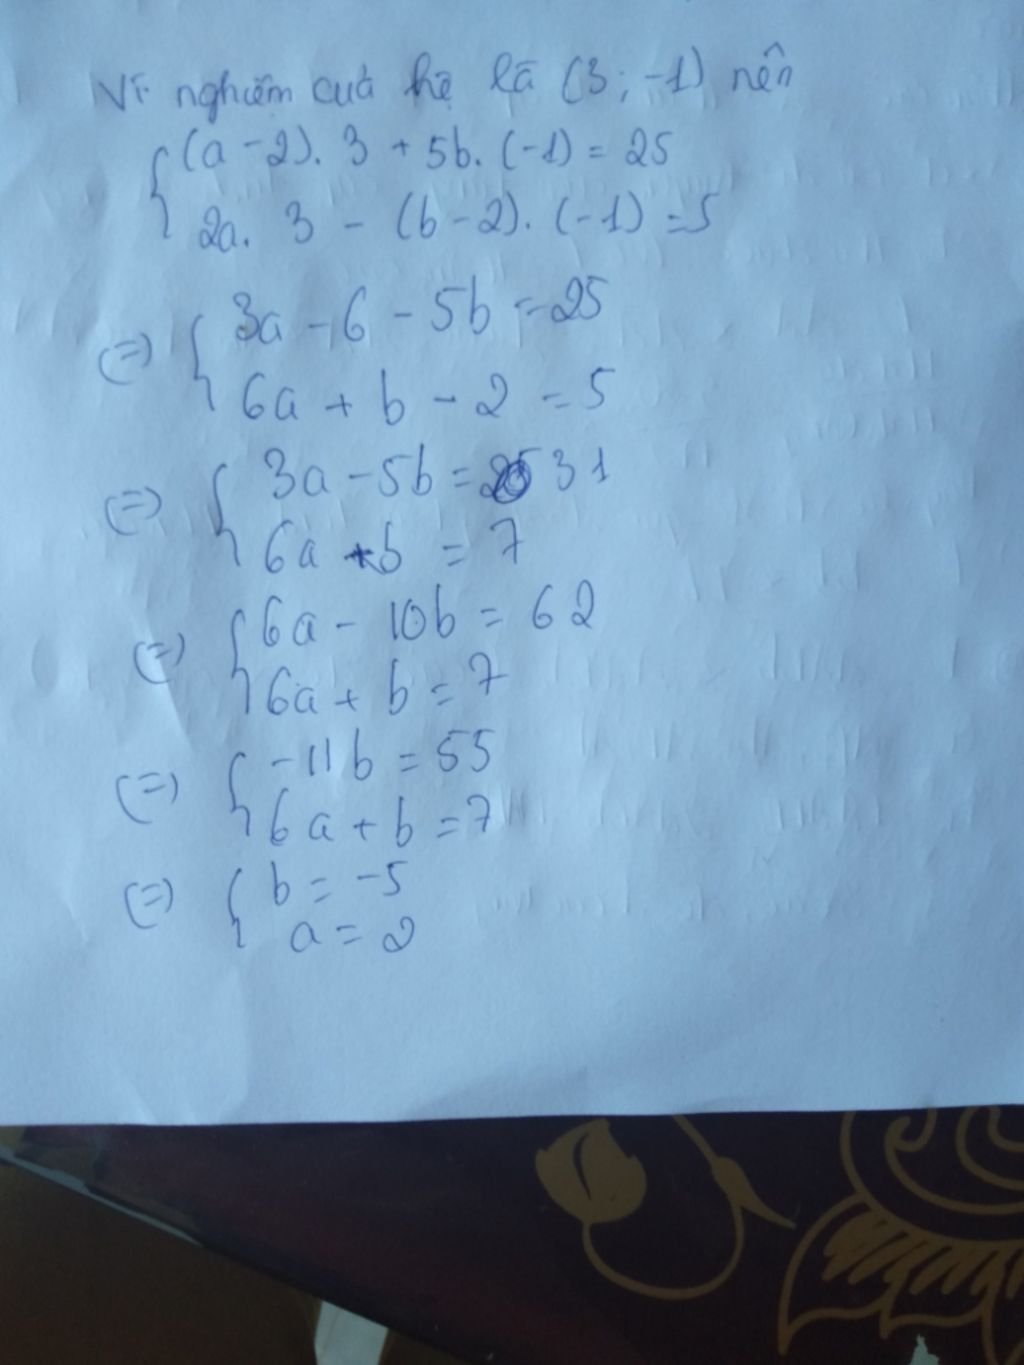 Vì nghiệm cuả hệ là (3; -1) nên
{ (a - 2). 3 + 5b. (-1) = 25
2a. 3 - (b - 2). (-1) = 5
(=) { 3a - 6 - 5b = 25
6a + b - 2 = 5
(=) { 3a - 5b = 31
6a + b = 7
(=) { 6a - 10b = 62
6a + b = 7
(=) { -11b = 55
6a + b = 7
(=) { b = -5
a = 2